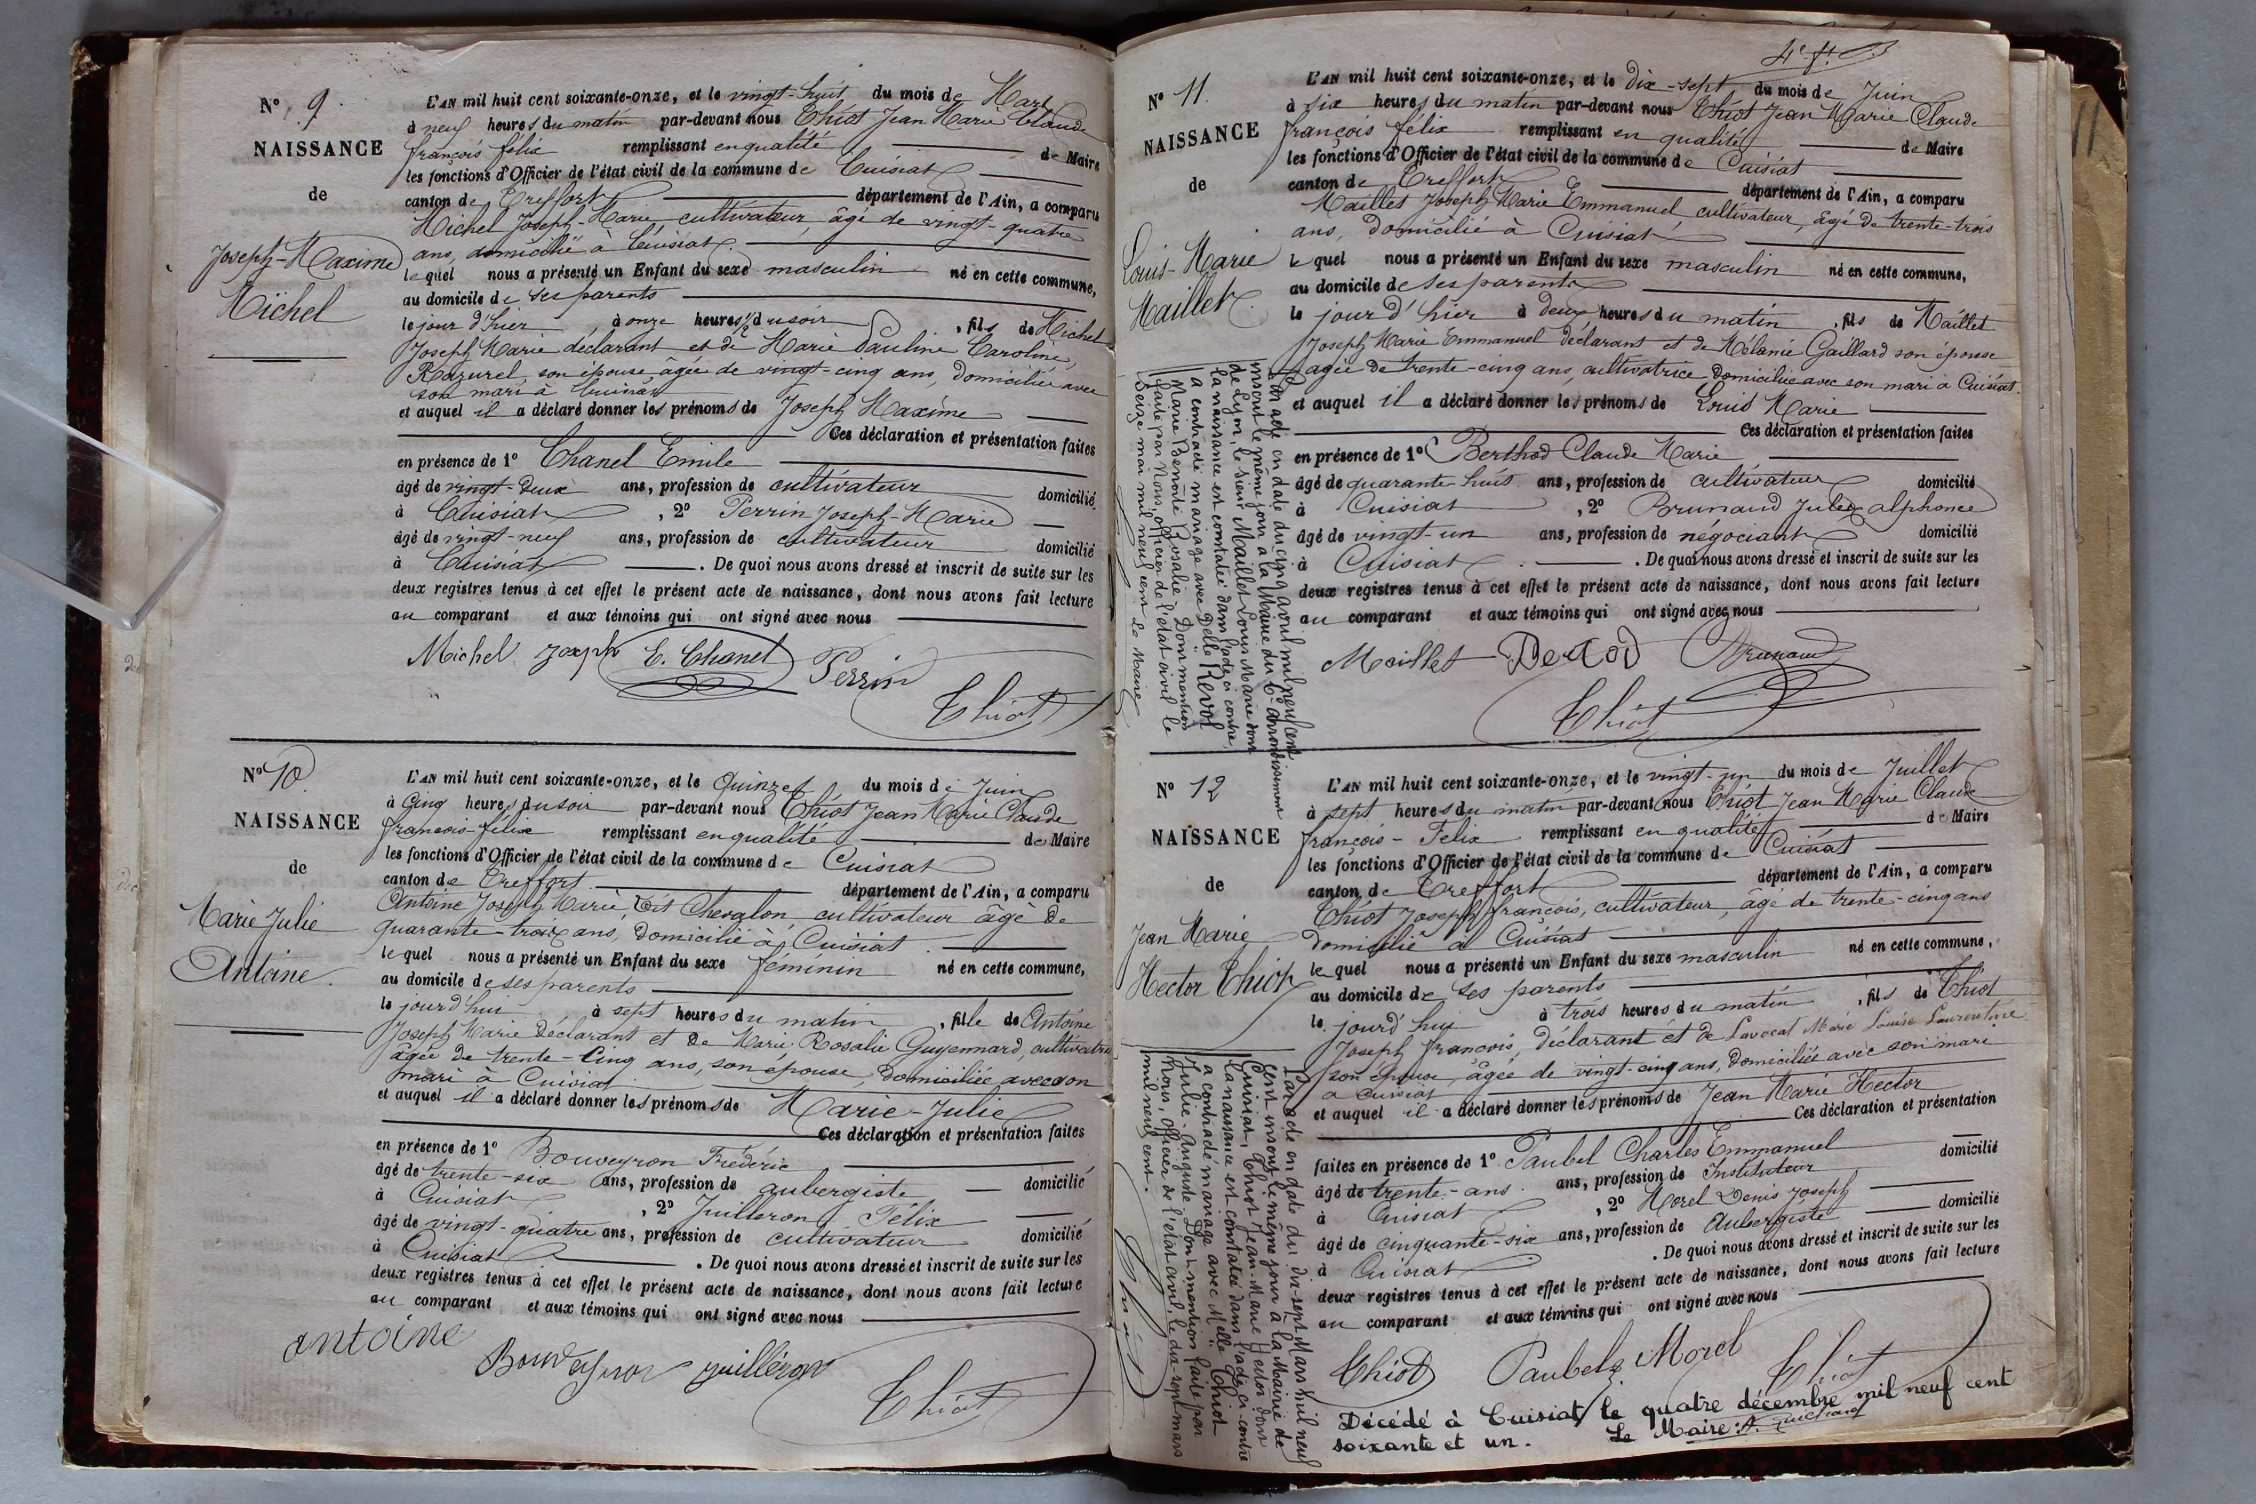 N° 9.
NAISSANCE
de
Joseph-Maxime
Michel
L'AN mil huit cent soixante-onze, et le vingt-huit du mois de Mars
à neuf heures du matin par-devant nous Chiot Jean Marie Claude
françois félix remplissant en qualité de Maire
les fonctions d'Officier de l'état civil de la commune de Cuisiat
canton de Treffort département de l'Ain, a comparu
Michel Joseph-Marie, cultivateur, âgé de vingt-quatre
ans, domicilié à Cuisiat.
lequel nous a présenté un Enfant du sexe masculin né en cette commune,
au domicile de ses parents
le jour d'hier à onze heures 1/2 du soir, fils de Michel
Joseph Marie déclarant et de Marie Pauline Caroline,
Razurel son épouse âgée de vingt-cinq ans, domiciliée avec
son mari à Cuisiat
et auquel il a déclaré donner les prénoms de Joseph Maxime
Ces déclaration et présentation faites
en présence de 1° Chanel Emile
âgé de vingt-deux ans, profession de cultivateur domicilié
à Cuisiat, 2° Perrin Joseph-Marie
âgé de vingt-neuf ans, profession de cultivateur domicilié
à Cuisiat. De quoi nous avons dressé et inscrit de suite sur les
deux registres tenus à cet effet le présent acte de naissance, dont nous avons fait lecture
au comparant et aux témoins qui ont signé avec nous
Michel Joseph E. Chanel Perrin
Chiot
N° 10.
NAISSANCE
de
Marie Julie
Antoine.
L'AN mil huit cent soixante-onze, et le Quinze du mois de Juin
à Cinq heures du soir par-devant nous Chiot Jean Marie Claude
françois-félix remplissant en qualité de Maire
les fonctions d'Officier de l'état civil de la commune de Cuisiat
canton de Treffort département de l'Ain, a comparu
Antoine Joseph Marie, dit Chevalon, cultivateur âgé de
quarante-trois ans, domicilié à Cuisiat.
lequel nous a présenté un Enfant du sexe féminin né en cette commune,
au domicile de ses parents
le jourd'hui à sept heures du matin, fille de Antoine
Joseph Marie Déclarant et de Marie Rosalie Guyennard, cultivatrice
âgée de trente-Cinq ans, son épouse, domiciliée avec son
mari à Cuisiat
et auquel il a déclaré donner les prénoms de Marie-Julie
Ces déclaration et présentation faites
en présence de 1° Bouveyron Frédéric
âgé de trente-six ans, profession de aubergiste domicilié
à Cuisiat, 2° Juilleron Félix
âgé de vingt-quatre ans, profession de cultivateur domicilié
à Cuisiat. De quoi nous avons dressé et inscrit de suite sur les
deux registres tenus à cet effet le présent acte de naissance, dont nous avons fait lecture
au comparant et aux témoins qui ont signé avec nous
antoine Bouveyron juilleron
Chiot
4e ft
N° 11.
NAISSANCE
de
Louis-Marie
Maillet.
L'AN mil huit cent soixante-onze, et le dix-sept du mois de Juin
à six heures du matin par-devant nous Chiot Jean Marie Claude
françois félix remplissant en qualité de Maire
les fonctions d'Officier de l'état civil de la commune de Cuisiat
canton de Treffort département de l'Ain, a comparu
Maillet Joseph Marie Emmanuel cultivateur, âgé de trente-trois
ans, domicilié à Cuisiat
lequel nous a présenté un Enfant du sexe masculin né en cette commune,
au domicile de ses parents
le jour d'hier à deux heures du matin, fils de Maillet
Joseph Marie Emmanuel déclarant et de Mélanie Gaillard son épouse
âgée de trente-cinq ans, cultivatrice domiciliée avec son mari à Cuisiat.
et auquel il a déclaré donner les prénoms de Louis Marie
Ces déclaration et présentation faites
en présence de 1° Berthod Claude Marie
âgé de quarante huit ans, profession de cultivateur domicilié
à Cuisiat, 2° Brunaud Jules alphonce
âgé de vingt-un ans, profession de négociant domicilié
à Cuisiat. De quoi nous avons dressé et inscrit de suite sur les
deux registres tenus à cet effet le présent acte de naissance, dont nous avons fait lecture
au comparant et aux témoins qui ont signé avec nous
Maillet Brunaud
Chiot
Par acte en date du cinq avril mil neuf cent
inscrit le même jour à la Mairie du 6e arrondissement
de Lyon, le sieur Maillet Louis Marie dont
la naissance est constatée dans l'acte ci contre
a contracté mariage avec Delle Revol
Marie Benoite Rosalie. Dont mention
faite par Nous, officier de l'état civil le
Seize mai mil neuf cent. Le Maire
N° 12
NAISSANCE
de
Jean Marie
Hector Chiot
L'AN mil huit cent soixante-onze, et le vingt-un du mois de Juillet
à sept heures du matin par-devant nous Chiot Jean Marie Claude
françois-Felix remplissant en qualité de Maire
les fonctions d'Officier de l'état civil de la commune de Cuisiat
canton de Treffort département de l'Ain, a comparu
Chiot Joseph françois, cultivateur, âgé de trente-cinq ans
domicilié à Cuisiat
lequel nous a présenté un Enfant du sexe masculin né en cette commune,
au domicile de ses parents
le jourd'hui à trois heures du matin, fils de Chiot
Joseph françois, déclarant et de Lavocat Marie Louise Laurentine
son épouse, âgée de vingt-cinq ans, domiciliée avec son mari
à Cuisiat
et auquel il a déclaré donner les prénoms de Jean Marie Hector
Ces déclaration et présentation
faites en présence de 1° Paubel Charles Emmanuel domicilié
âgé de trente-ans ans, profession de Instituteur
à Cuisiat, 2° Morel Denis Joseph domicilié
âgé de cinquante-six ans, profession de Aubergiste
à Cuisiat. De quoi nous avons dressé et inscrit de suite sur les
deux registres tenus à cet effet le présent acte de naissance, dont nous avons fait lecture
au comparant et aux témoins qui ont signé avec nous
Chiot Paubel Morel
Chiot
Par acte en date du dix-sept Mars mil neuf
cent inscrit le même jour à la Mairie de
Cuisiat, Chiot Jean-Marie Hector dont
la naissance est constatée dans l'acte ci-contre
a contracté mariage avec Melle Chiot
Julie-Auguste. Dont mention faite par
Nous, officier de l'état civil, le dix-sept mars
mil neuf cent.
Chiot
Décédé à Cuisiat, le quatre décembre mil neuf cent
soixante et un. Le Maire: A.